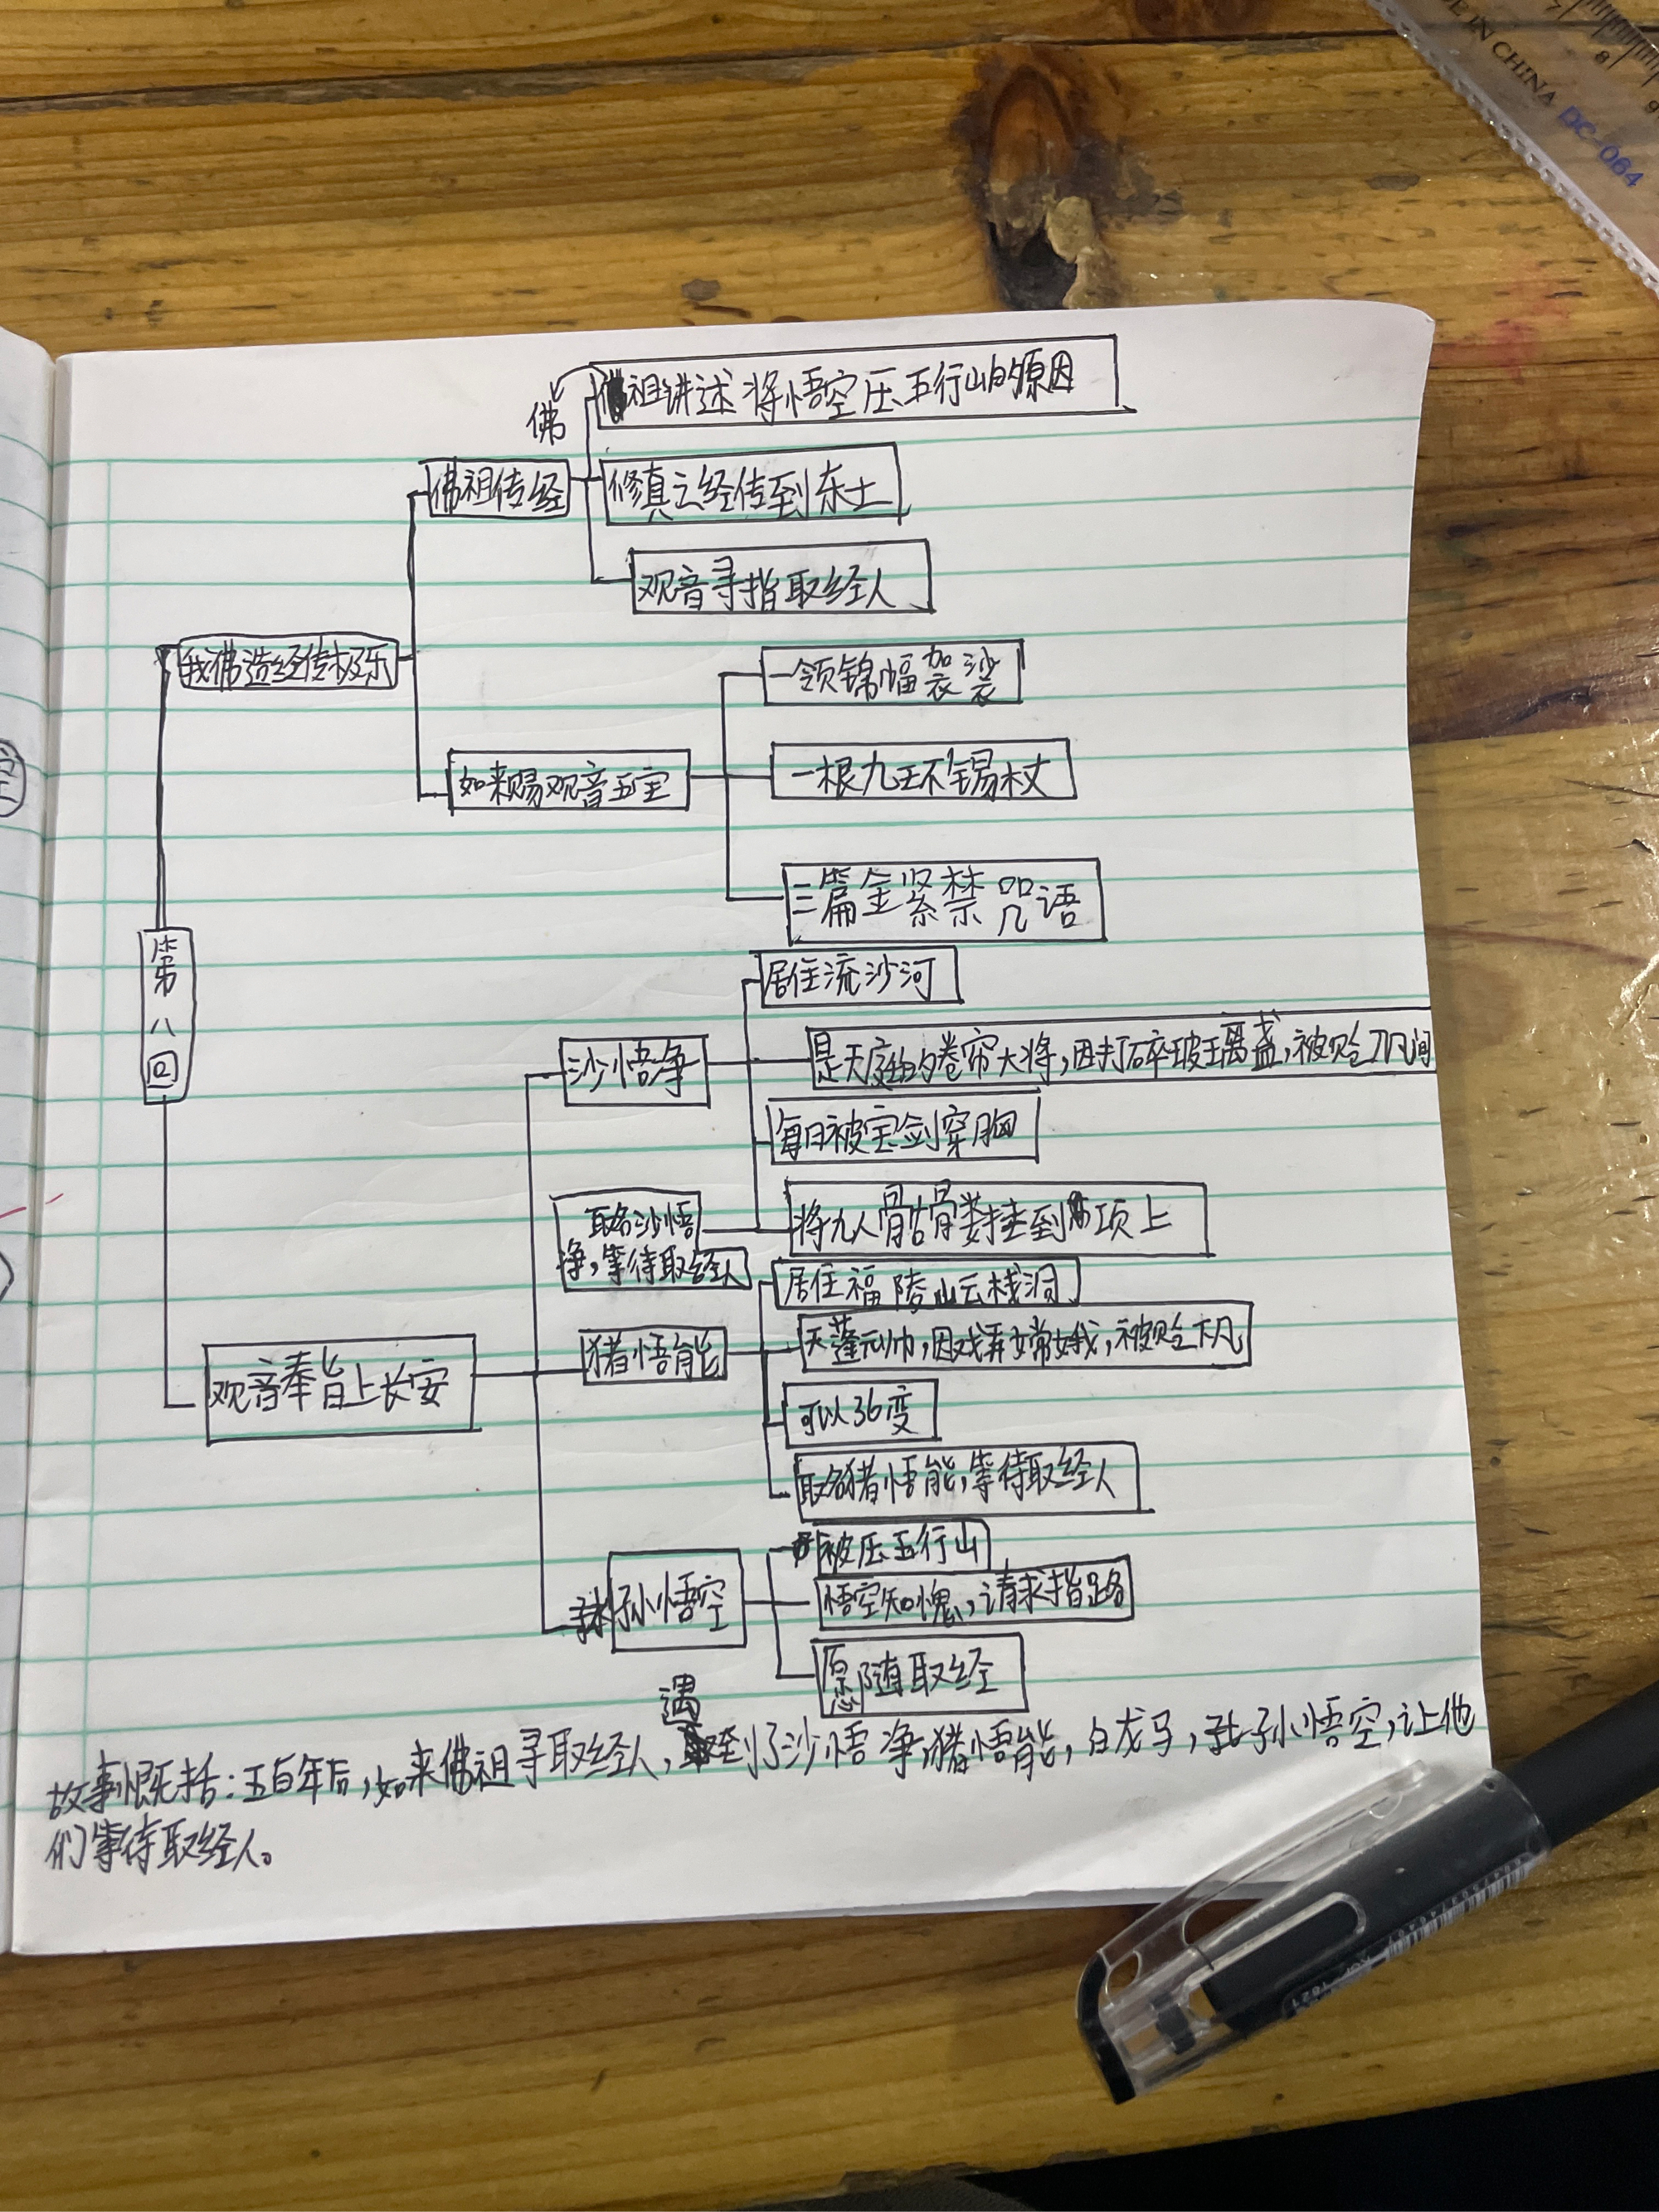 MADE IN CHINA DC-064
7 8 9
佛
佛祖讲述将悟空压五行山的原因
佛祖传经
修真之经传到东土
观音寻指取经人
我佛造经传极乐
一领锦幅袈裟
如来赐观音五宝
一根九环锡杖
三篇金紧禁咒语
第八回
居住流沙河
沙悟净
是天庭的卷帘大将,因打碎玻璃盏,被贬下凡间
每日被宝剑穿胸
取名沙悟
净,等待取经人
将九人骨骷骨娄挂到项上
居住福陵山云栈洞
猪悟能
天蓬元帅,因戏弄嫦娥,被贬下凡
观音奉旨上长安
可以36变
取名猪悟能,等待取经人
被压五行山
孙悟空
悟空知愧,请求指路
愿随取经
遇
故事概括:五百年后,如来佛祖寻取经人,到了沙悟净,猪悟能,白龙马,孙悟空,让他
们等待取经人。